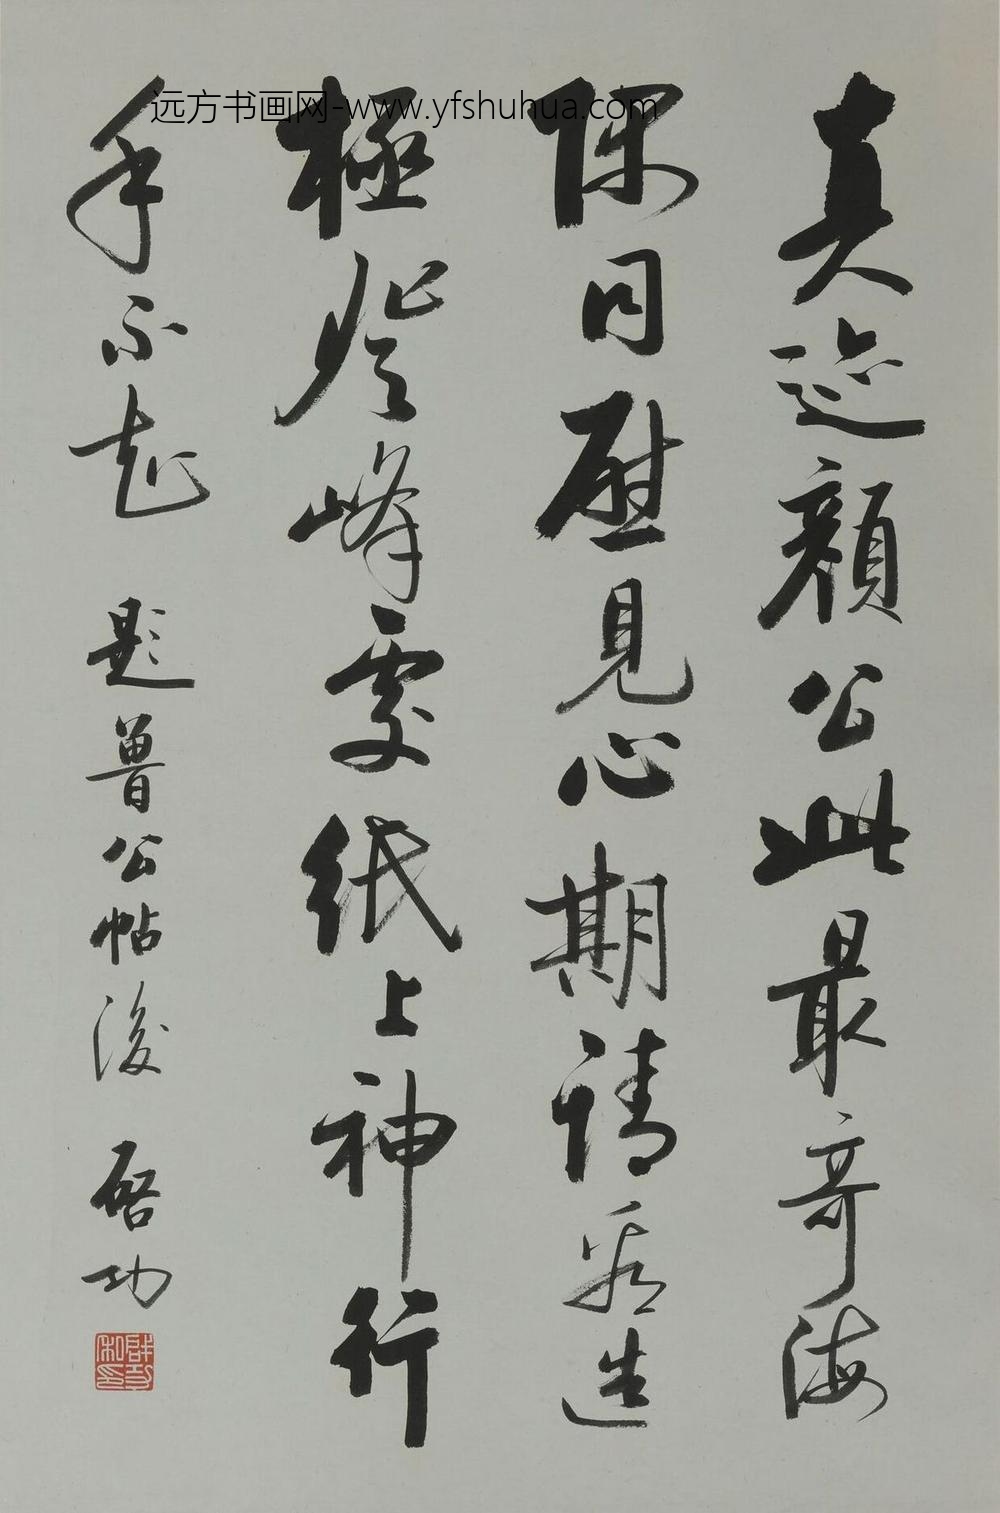 远方书画网-www.yfshuhua.com
真迹颜公此最奇海
隅同慰见心期请看造
極登峰處纸上神行
手不知
题鲁公帖後 启功